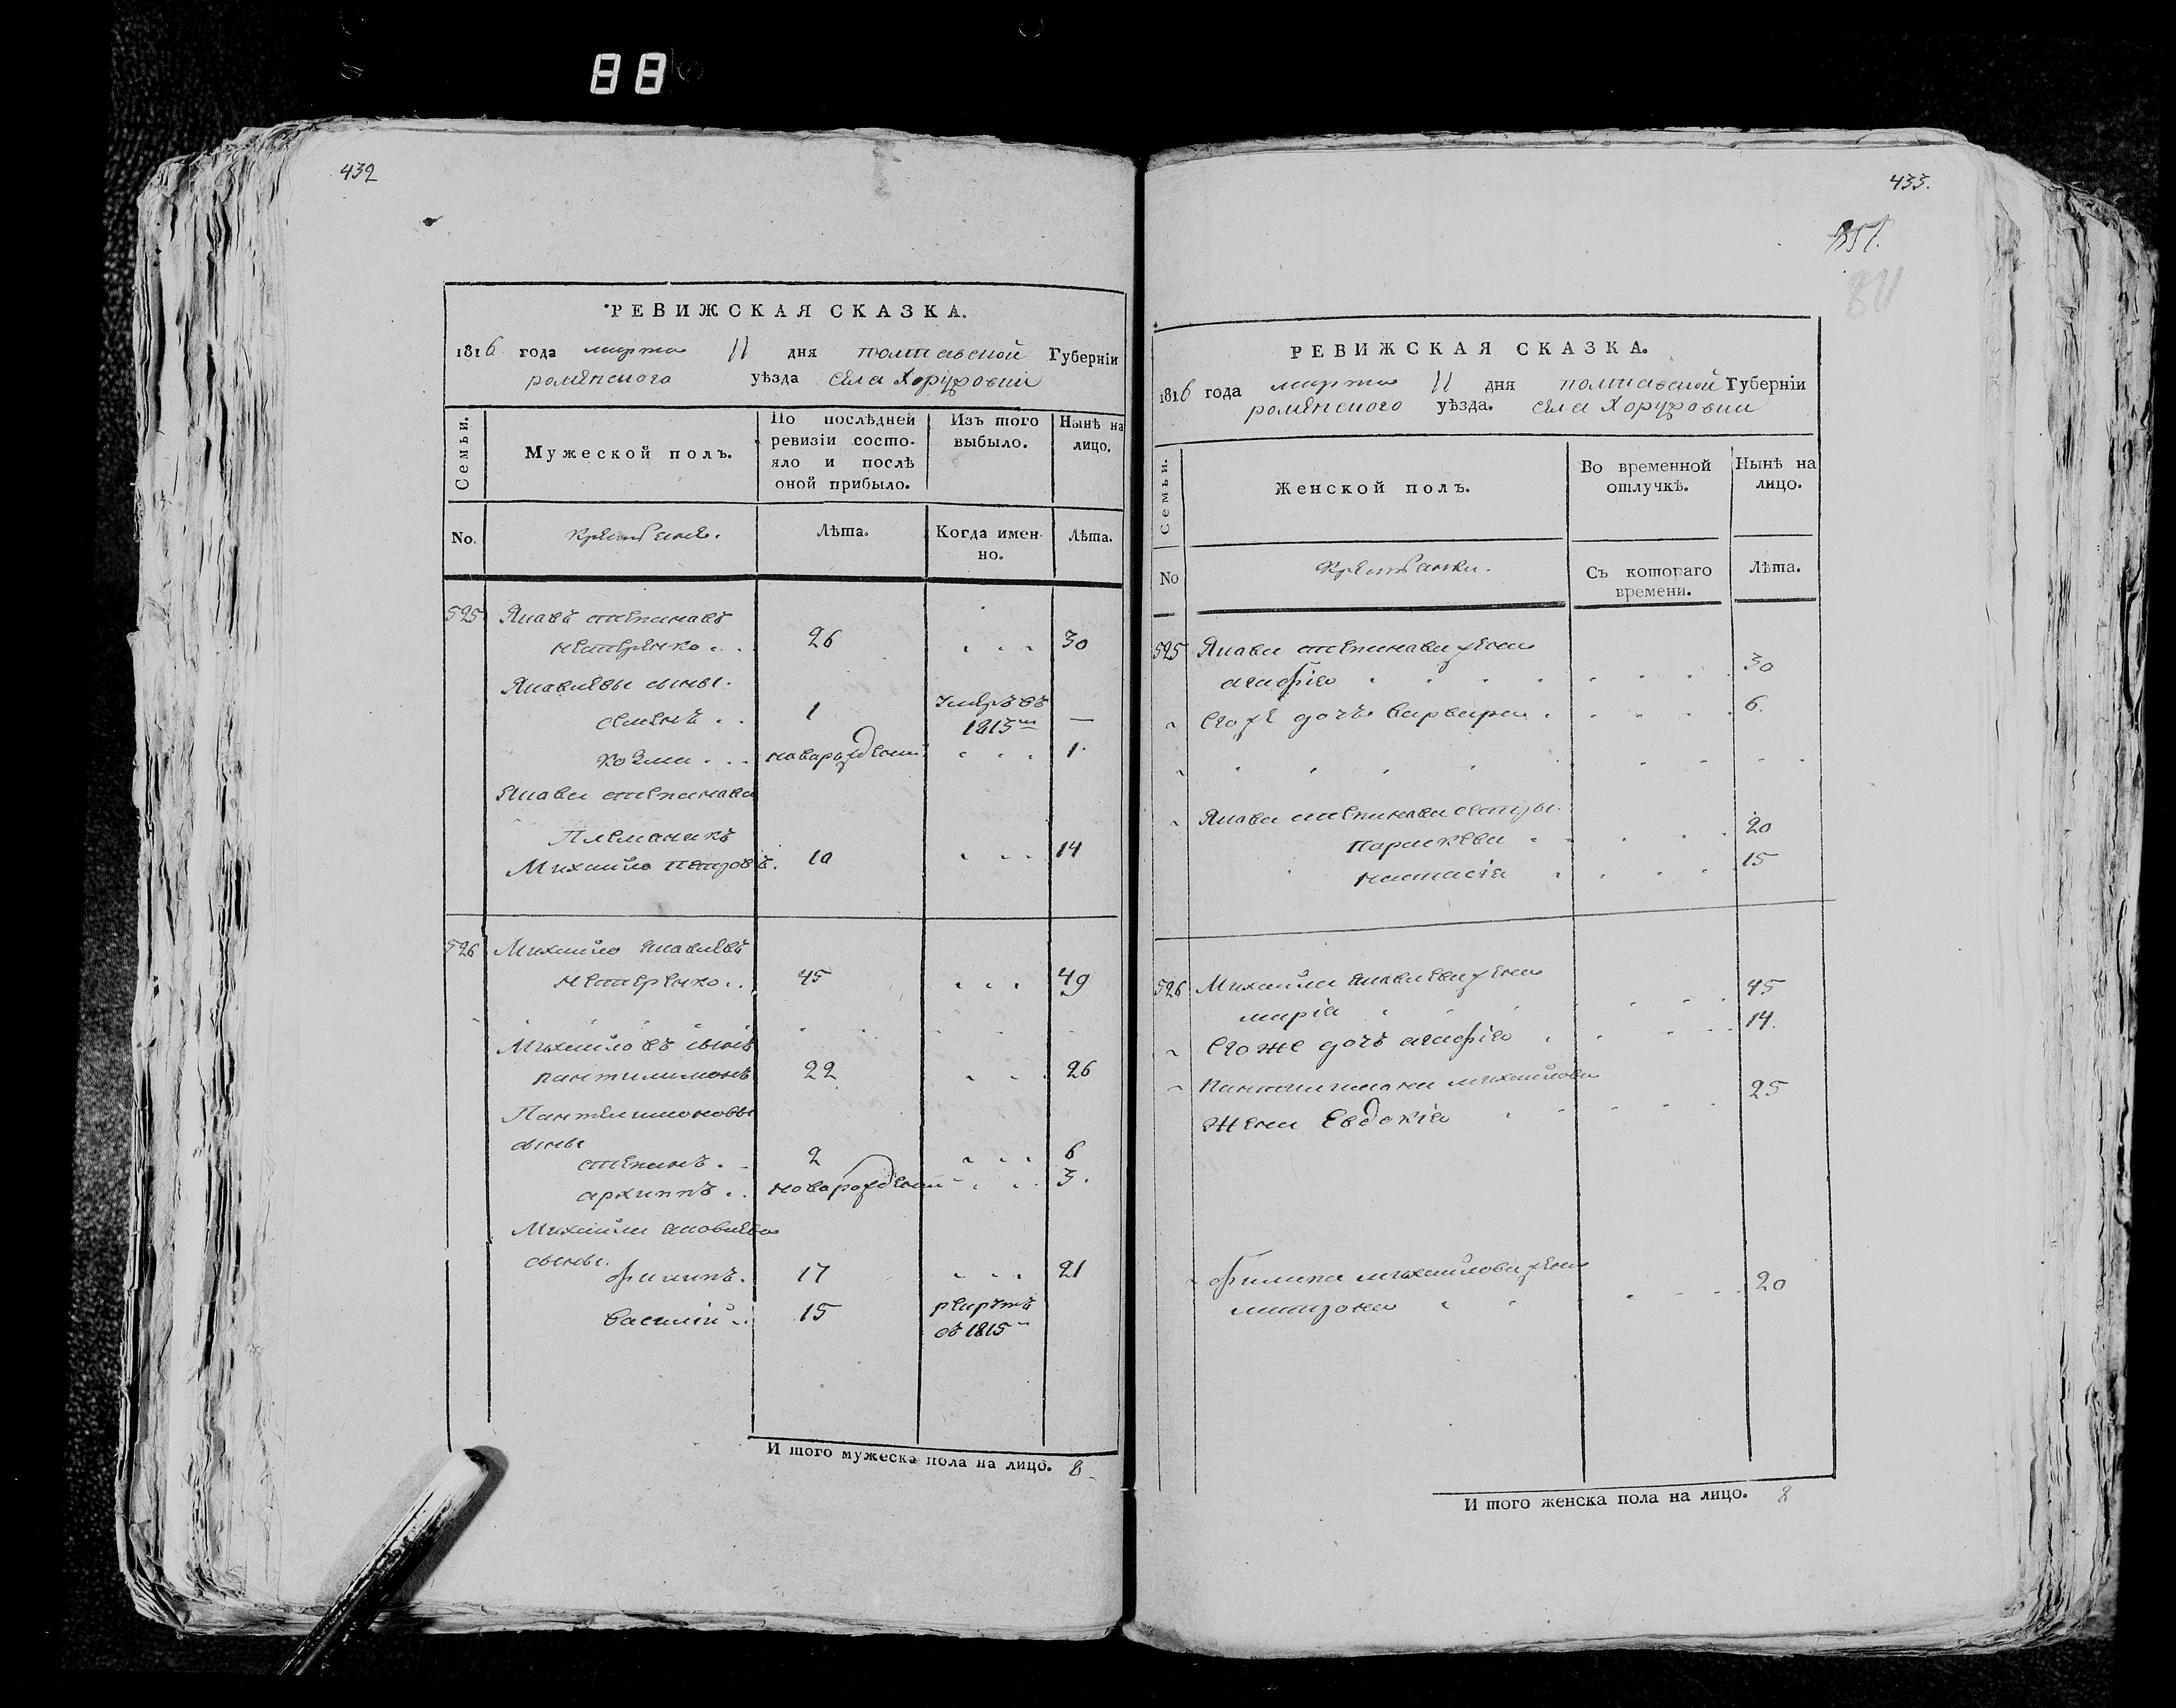 88
432
РЕВИЖСКАЯ СКАЗКА.
1816 года марта 11 дня полтавской Губерніи
роменского уѣзда села Хоружовки
Семьи.
Мужеской полъ.
По послѣдней ревизіи состояло и послѣ оной прибыло.
Изъ того выбыло.
Нынѣ на лицо.
No. Крестьяне. Лѣта. Когда именно. Лѣта.
525 Яковъ степановъ
нестеренко 26 30
Яковлевы сыны.
семенъ 1 умеръ въ 1815м —
козма новорожденный 1
Якова степанова
Племяникъ
Михайло петровъ. 10 14
526 Михайло яковлевъ
нестеренко 45 49
Михайловъ сынъ
пантилимонъ 22 26
Пантелимоновы
сыны
степанъ 2 6
архиппъ новорожденный 3
Михайла яковлева
сыны.
филипъ. 17 21
Василій 15 рекрутъ
въ 1815
И того мужеска пола на лицо. 8
433.
811
РЕВИЖСКАЯ СКАЗКА.
1816 года марта 11 дня полтавской Губерніи
роменского уѣзда. села Хоружовки
Семьи.
Женской полъ.
Во временной отлучкѣ.
Нынѣ на лицо.
No Крестьянки. Съ котораго времени. Лѣта.
525 Якова степанова жена
агафія 30
Его же дочь варвара 6.
Якова степанова сестры
параскева 20
настасія 15
526 Михайла яковлева жена
марія 45
Его же дочь агафія 14.
пантилимона михайлова
жена Евдокія 25
филипа михайлова жена
матрона 20
И того женска пола на лицо. 8